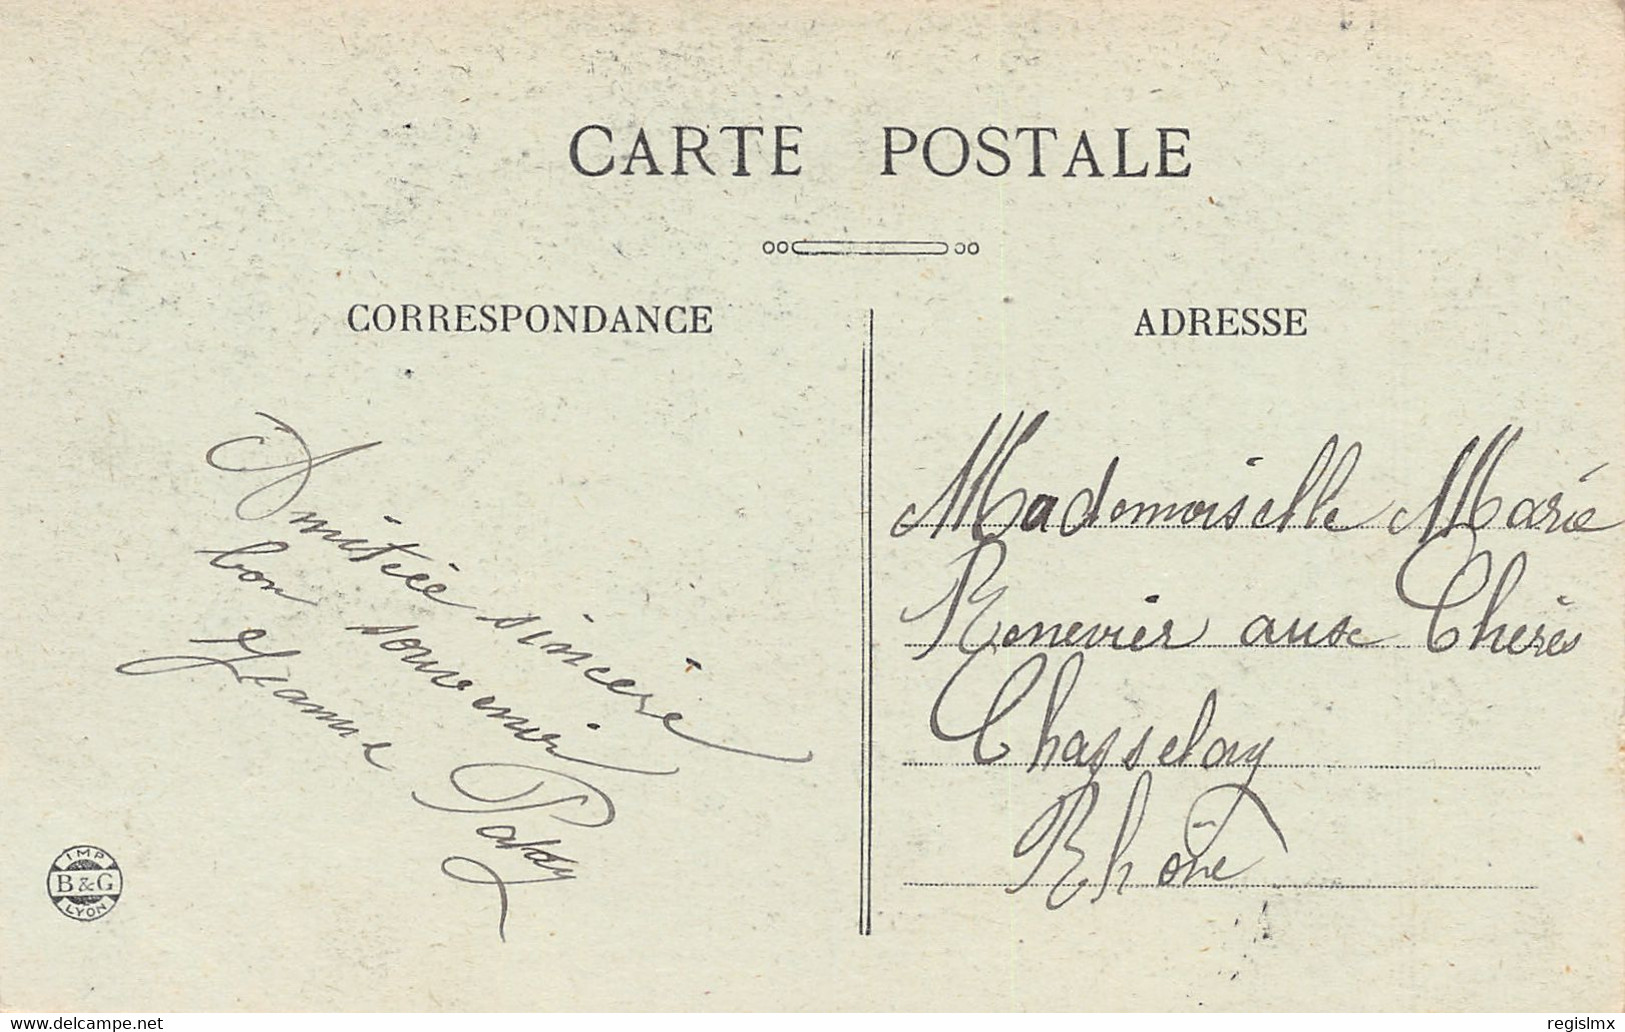 CARTE POSTALE
CORRESPONDANCE
Amitiée sincère
bon souvenir
Jeanne
ADRESSE
Mademoiselle Marie
Renevier aux Chères
Chasselay
Rhône
IMP
B & G
LYON
www.delcampe.net
regislmx